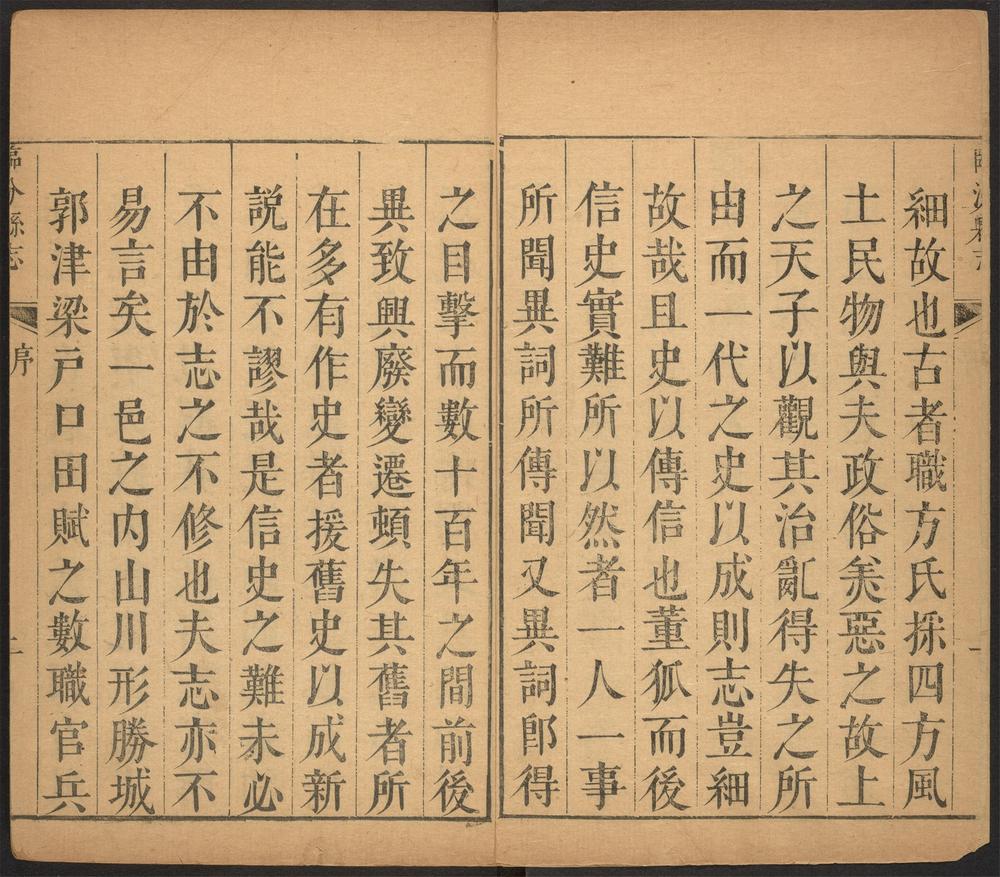 臨汾縣志
一
細故也古者職方氏採四方風
土民物與夫政俗美惡之故上
之天子以觀其治亂得失之所
由而一代之史以成則志豈細
故哉且史以傳信也董狐而後
信史實難所以然者一人一事
所聞異詞所傳聞又異詞郎得
之目擊而數十百年之間前後
異致興廢變遷頓失其舊者所
在多有作史者援舊史以成新
説能不謬哉是信史之難未必
不由於志之不修也夫志亦不
易言矣一邑之内山川形勝城
郭津梁戸口田賦之數職官兵
臨汾縣志
序
二